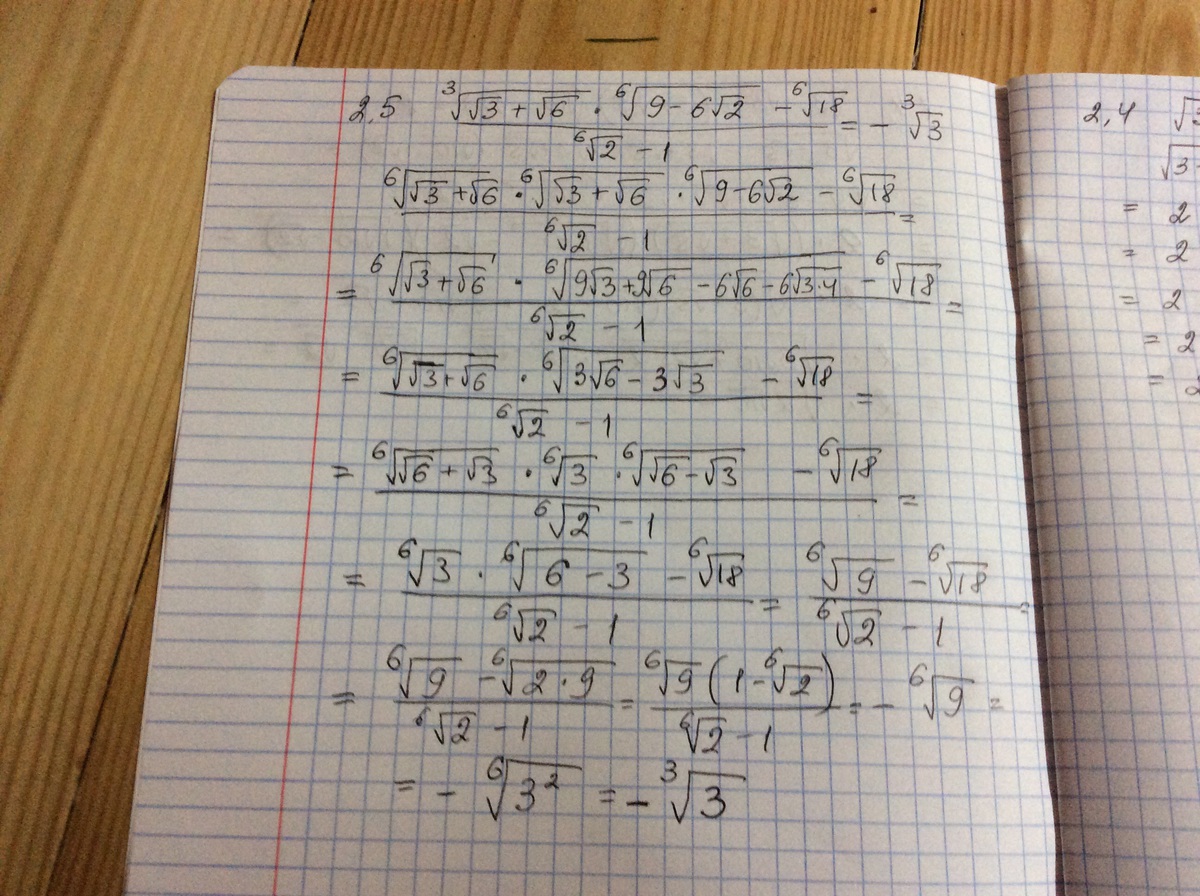 2,5 ∛(√3 + √6) · ⁶√(9 - 6√2) - ⁶√18 / ⁶√2 - 1 = - ∛3
⁶√(√3 + √6) · ⁶√(√3 + √6) · ⁶√(9 - 6√2) - ⁶√18 / ⁶√2 - 1 =
= ⁶√(√3 + √6) · ⁶√(9√3 + 9√6 - 6√6 - 6√3·4) - ⁶√18 / ⁶√2 - 1 =
= ⁶√(√3 + √6) · ⁶√(3√6 - 3√3) - ⁶√18 / ⁶√2 - 1 =
= ⁶√(√6 + √3) · ⁶√3 · ⁶√(√6 - √3) - ⁶√18 / ⁶√2 - 1 =
= ⁶√3 · ⁶√(6 - 3) - ⁶√18 / ⁶√2 - 1 = ⁶√9 - ⁶√18 / ⁶√2 - 1 =
= ⁶√9 - ⁶√(2·9) / ⁶√2 - 1 = ⁶√9 (1 - ⁶√2) / ⁶√2 - 1 = - ⁶√9 =
= - ⁶√3² = - ∛3
2,4
= 2
= 2
= 2
= 2
=